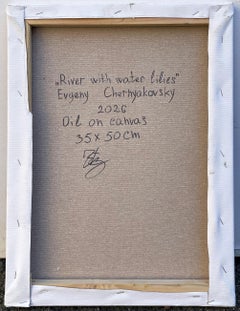 „River with water lilies"
Evgeny Chernyakovsky
2026
Oil on canvas
35 x 50 cm